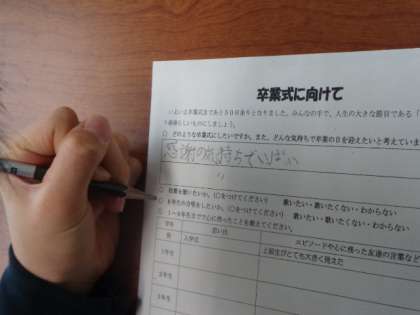 卒業式に向けて
いよいよ卒業式まであと５０日余りとなりました。みんなの手で、人生の大きな節目である「
素晴らしいものにしましょう。
○ どのような卒業式にしたいですか。また、どんな気持ちで卒業の日を迎えたいと考えていま
感謝の気持ちでいっぱい
○ 校歌を歌いたいか。(○をつけてください) 歌いたい・歌いたくない・わからない
○ ６年生の合唱をしたいか。(○をつけてください) 歌いたい・歌いたくない・わからない
○ １～６年生までで心に残ったことを教えてください。
学年 思い出 エピソードや心に残った友達の言葉など
例 入学式 上級生がとても大きく見えた
１年生
２年生
３年生